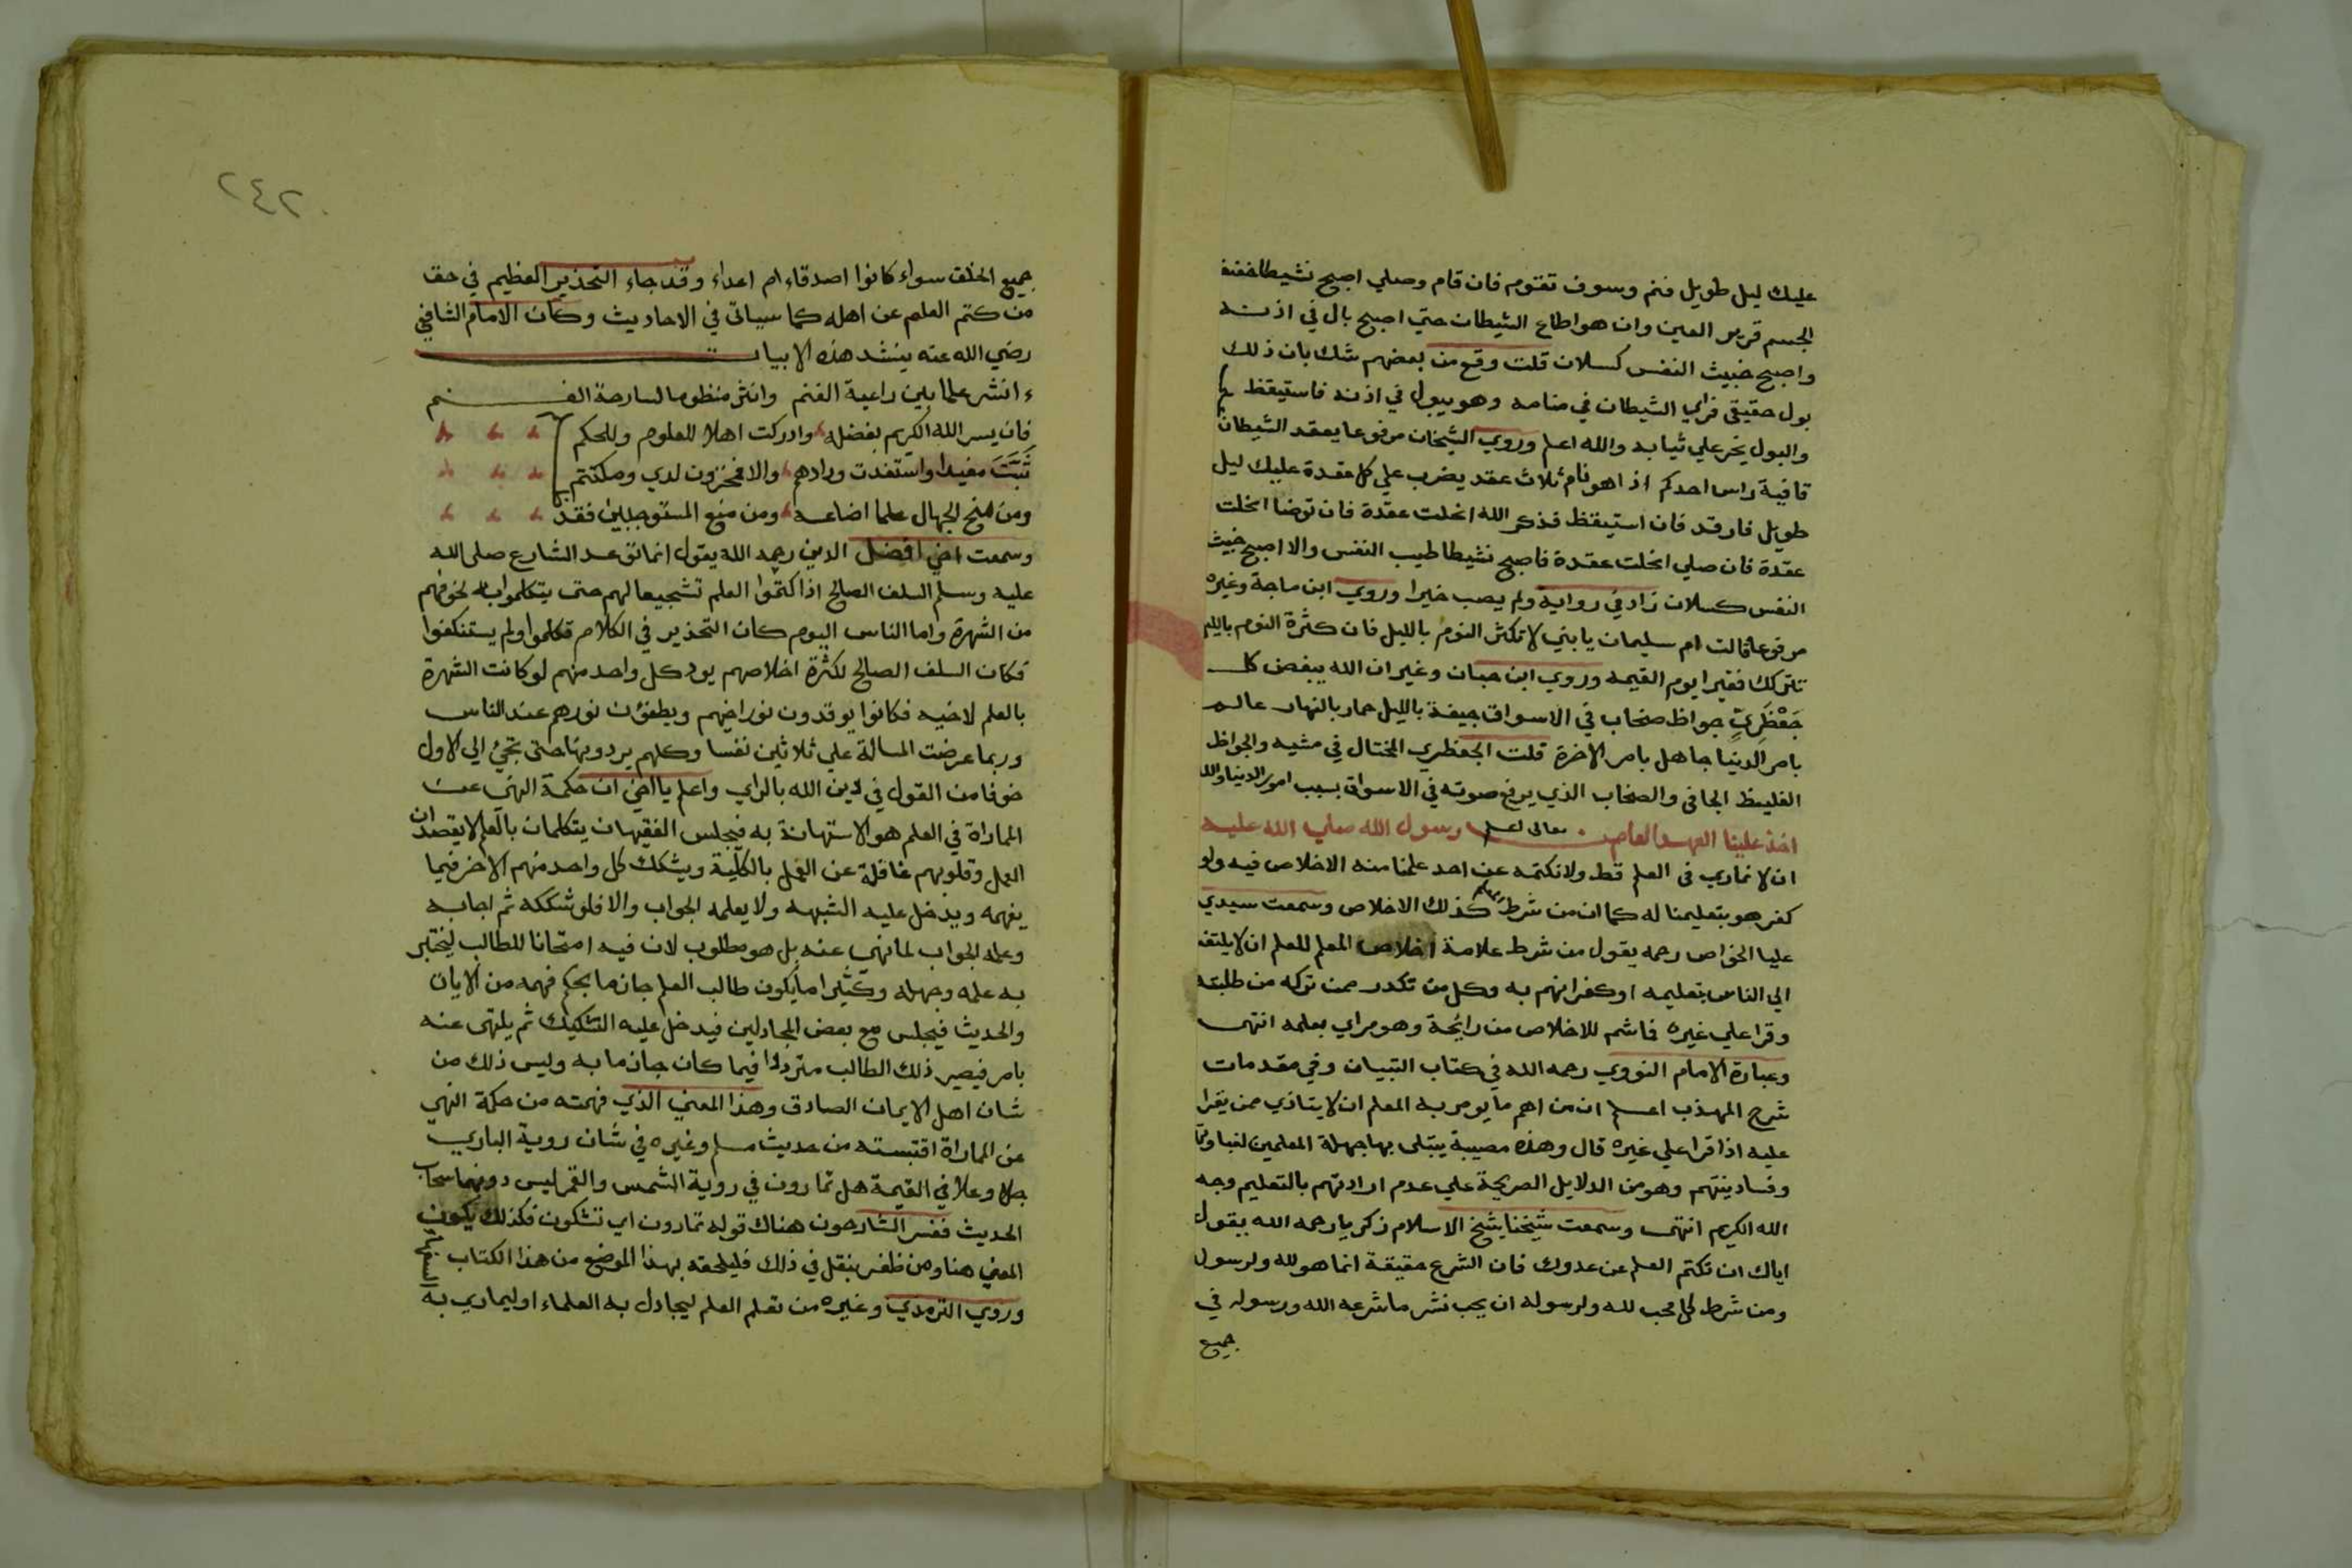 عليك ليل طويل فنم وسوف تقوم فان قام وصلي اصبح نشيطا خفيف
الجسم قرير العين وان هو اطاع الشيطان حتي اصبح بال في اذنه
واصبح خبيث النفس كسلان قلت وقع من بعضهم شك بان ذلك
بول حقيقي فراي الشيطان في منامه وهو يبول في اذنه فاستيقظ
والبول يخر علي ثيابه والله اعلم وروي الشيخان مرفوعا يعقد الشيطان
قافية راس احدكم اذا هو نام ثلاث عقد يضرب علي كل عقدة عليك ليل
طويل فارقد فان استيقظ فذكر الله انحلت عقدة فان توضا انحلت
عقدة فان صلي انحلت عقدة فاصبح نشيطا طيب النفس والا اصبح خبيث
النفس كسلان زاد في رواية ولم يصب خيرا وروي ابن ماجة وغيره
مرفوعا قالت ام سليمان يا بني لا تكثر النوم بالليل فان كثرة النوم بالليل
تتركك فقيرا يوم القيمه وروي ابن حبان وغيره ان الله يبغض كل
جَعْظَرِيٍّ جواظ صخاب في الاسواق جيفة بالليل حمار بالنهار عالم
بامر الدنيا جاهل بامر الاخرة قلت الجعظري المختال في مشيه والجواظ
الغليظ الجافي والصخاب الذي يرفع صوته في الاسواق بسبب امور الدنيا والله
تعالى اعلم
اخذ علينا العهد العام من رسول الله صلي الله عليه
ان لا نماري في العلم قط ولا نكتمه عن احد علمنا منه الاخلاص فيه ولو
كفر هو بتعليمنا له كما ان من شرط كذلك الاخلاص وسمعت سيدي
عليا الخواص رحمه يقول من شرط علامة اخلاص المعلم للعلم ان لا يلتفت
الي الناس بتعليمه او كفرانهم به وكل من تكدر ممن تركه من طلبته
وقرا علي غيره فما شم للاخلاص من رايحة وهو مراي بعلمه انتهى
وعبارة الامام النووي رحمه الله في كتاب التبيان وفي مقدمات
شرح المهذب اعلم ان من اهم ما يومر به المعلم ان لا يتاذي ممن يقرا
عليه اذا قرا علي غيره قال وهذه مصيبة يبتلى بها جهلة المعلمين لغباوتهم
وفساد نيتهم وهو من الدلايل الصريحة علي عدم ارادتهم بالتعليم وجه
الله الكريم انتهى وسمعت شيخنا شيخ الاسلام زكريا رحمه الله يقول
اياك ان تكتم العلم عن عدوك فان الشرع حقيقة انما هو لله ولرسول
ومن شرط كل محب لله ولرسوله ان يحب نشر ما شرعه الله ورسوله في
جميع
٢٤٢
جميع الخلق سواء كانوا اصدقاء ام اعداء وقد جاء التحذير العظيم في حق
من كتم العلم عن اهله كما سياتي في الاحاديث وكان الامام الشافعي
رضي الله عنه ينشد هذه الابيات
ء انشر علما بين راعية الغنم وانثر منظوما لسارحة الغنم
فان يسر الله الكريم بفضله وادركت اهلا للعلوم وللحكم
ثَبَتَّ مفيدا واستفدت ودادهم والا فمخزون لدي ومكتتم
ومن منح الجهال علما اضاعه ومن منع المستوجبين فقد
وسمعت اخي افضل الدين رحمه الله يقول انما توعد الشارع صلى الله
عليه وسلم السلف الصالح اذا كتموا العلم تشجيعا لهم حتى يتكلموا به لخوفهم
من الشهرة واما الناس اليوم كان التحذير في الكلام فكلموا ولم يستنكفوا
فكان السلف الصالح لكثرة اخلاصهم يود كل واحد منهم لو كانت الشهرة
بالعلم لاخيه فكانوا يوقدون نور اخيهم ويطفؤن نورهم عند الناس
وربما عرضت المسالة علي ثلاثين نفسا وكلهم يردونها حتى تجئ الي الاول
خوفا من القول في دين الله بالراي واعلم يا اخي ان حكمة النهى عن
المماراة في العلم هو الاستهانة به فيجلس الفقيهان يتكلمان بالعلم لا يقصدان
العمل وقلوبهم غافلة عن العمل بالكلية ويشكك كل واحد منهم الاخر فيما
يفهمه ويدخل عليه الشبهه ولا يعلمه الجواب والا فلو شككه ثم اجابه
وعلمه الجواب لما نهي عنه بل هو مطلوب لان فيه امتحانا للطالب ليختبر
به علمه وجهله وكثيرا ما يكون طالب العلم جازما بحكم فهمه من الايات
والحديث فيجلس مع بعض المجادلين فيدخل عليه التشكيك ثم يلتهى عنه
بامر فيصير ذلك الطالب مترددا فيما كان جازما به وليس ذلك من
شان اهل الايمان الصادق وهذا المعني الذي فهمته من حكمة النهي
عن المماراة اقتبسته من حديث مسلم وغيره في شان روية الباري
جل وعلا في القيمة هل تمارون في روية الشمس والقمر ليس دونهما سحاب
الحديث ففسر الشارحون هناك قوله تمارون اي تشكون فكذلك يكون
المعني هنا ومن ظفر بنقل في ذلك فليلحقه بهذا الموضع من هذا الكتاب
وروي الترمذي وغيره من تعلم العلم ليجادل به العلماء او ليماري به